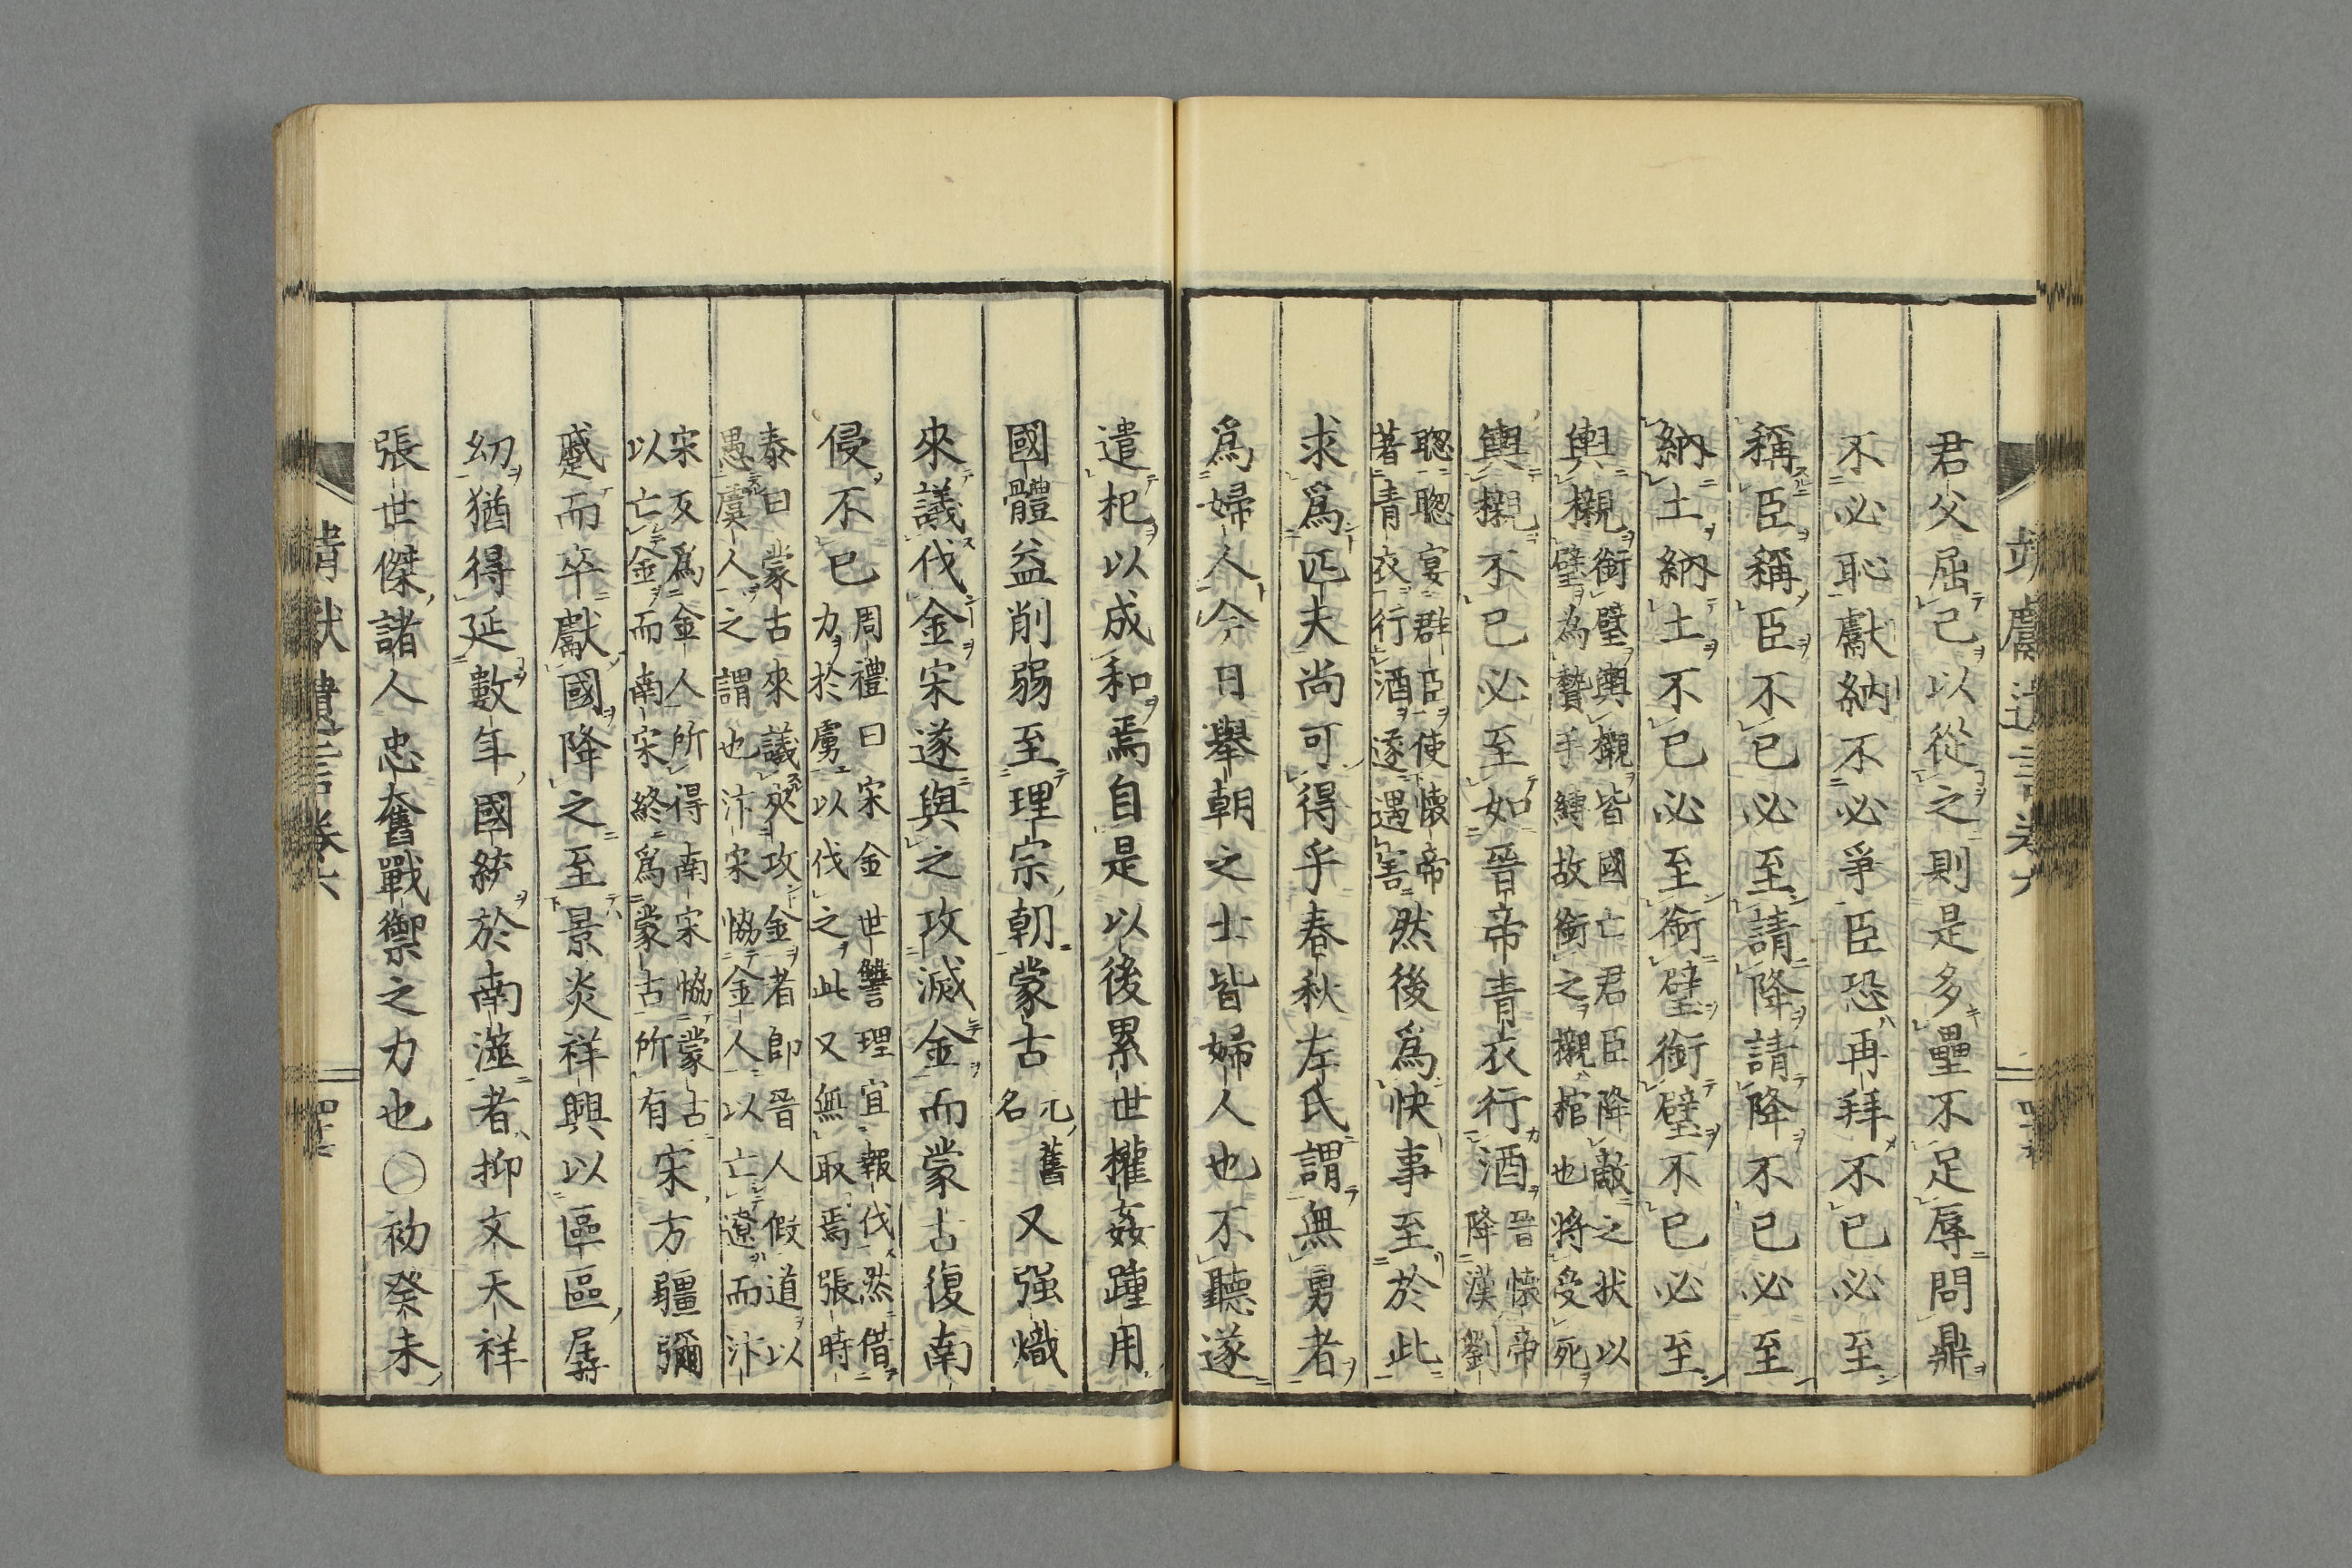 靖獻遺言卷六
君父屈己以從之則是多壘不足辱問鼎
不必恥獻納不必爭臣恐再拜不已必至
稱臣稱臣不已必至請降請降不已必至
納土納土不已必至銜璧銜璧不已必至
輿櫬銜璧輿櫬皆國亡君臣降敵之狀以
璧為贄手縛故銜之櫬棺也將受死
輿櫬不已必至如晉帝青衣行酒晉懷帝
降漢劉
聰聰宴群臣使懷帝
著青衣行酒遂遇害然後爲快事至於此
求爲匹夫尚可得乎春秋左氏謂無勇者
爲婦人今日舉朝之士皆婦人也不聽遂
遣杞以成和焉自是以後累世權姦踵用
國體益削弱至理宗朝蒙古元舊
名又强熾
來議伐金宋遂與之攻滅金而蒙古復南
侵不已周禮曰宋金世讐理宜報伐然借
力於虜以伐之此又無取焉張時
泰曰蒙古來議夾攻金者即晉人假道以
愚虞人之謂也汴宋恊金人以亡遼而汴
宋反爲金人所得南宋恊蒙古
以亡金而南宋終爲蒙古所有宋方疆彌
蹙而卒獻國降之至景炎祥興以區區孱
幼猶得延數年國統於南澨者抑文天祥
張世傑諸人忠奮戰禦之力也○初癸未
靖獻遺言卷六